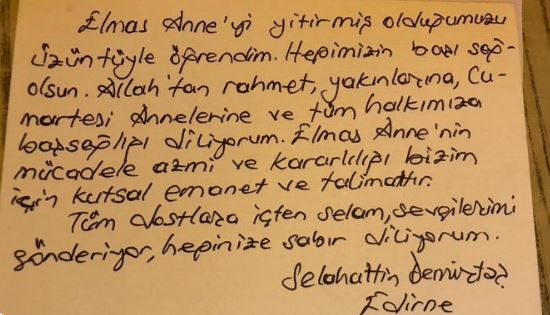 Elmas Anne'yi yitirmiş olduğumuzu
üzüntüyle öğrendim. Hepimizin başı sağ-
olsun. Allah'tan rahmet, yakınlarına, Cu-
martesi Annelerine ve tüm halkımıza
başsağlığı diliyorum. Elmas Anne'nin
mücadele azmi ve kararlılığı bizim
için kutsal emanet ve talimattır.
Tüm dostlara içten selam, sevgilerimi
gönderiyor, hepinize sabır diliyorum.
Selahattin Demirtaş
Edirne